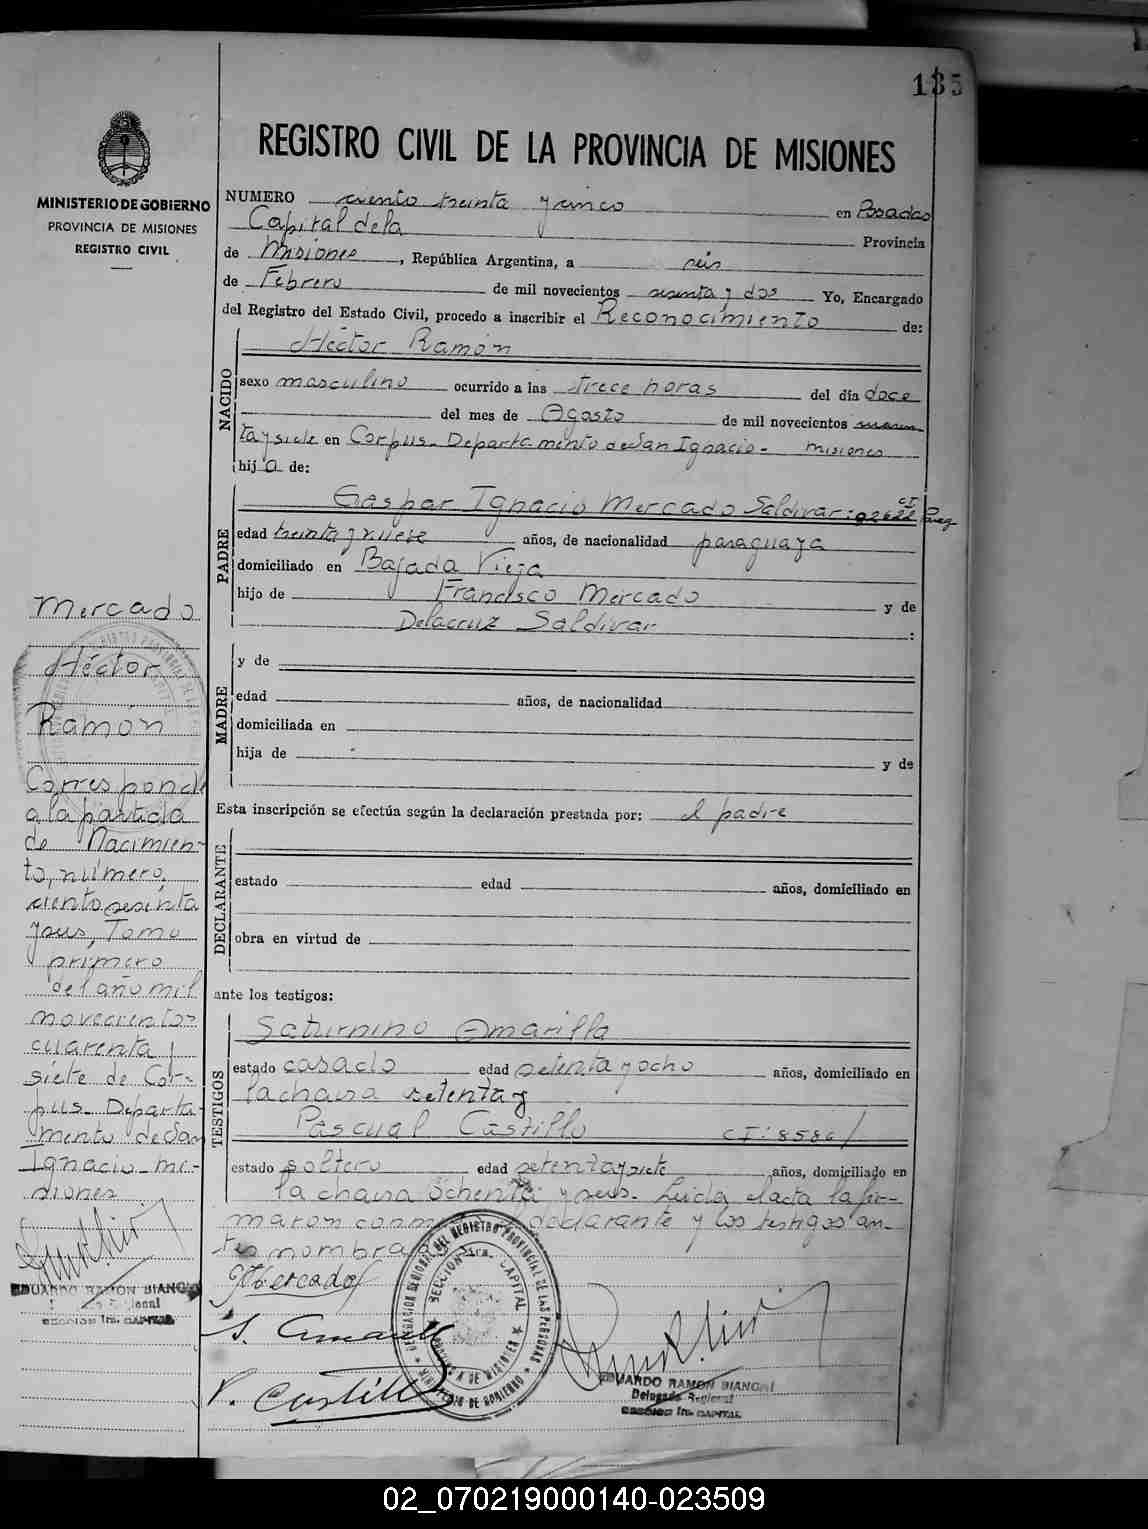 135
REGISTRO CIVIL DE LA PROVINCIA DE MISIONES
MINISTERIO DE GOBIERNO
PROVINCIA DE MISIONES
REGISTRO CIVIL
NUMERO ciento treinta y cinco en Posadas
Capital de la Provincia
de Misiones, República Argentina, a seis
de Febrero de mil novecientos sesenta y dos Yo, Encargado
del Registro del Estado Civil, procedo a inscribir el Reconocimiento de:
NACIDO
Héctor Ramón
sexo masculino ocurrido a las trece horas del día doce
del mes de Agosto de mil novecientos cuaren
ta y siete en Corpus - Departamento de San Ignacio - Misiones
hijo de:
PADRE
Gaspar Ignacio Mercado Saldivar: CI
edad treinta y nueve años, de nacionalidad paraguaya
domiciliado en Bajada Vieja
hijo de Francisco Mercado y de
Delacruz Saldivar :
MADRE
y de
edad años, de nacionalidad
domiciliada en
hija de y de
Esta inscripción se efectúa según la declaración prestada por: el padre
DECLARANTE
estado edad años, domiciliado en
obra en virtud de
ante los testigos:
TESTIGOS
Saturnino Amarilla
estado casado edad setenta y ocho años, domiciliado en
la chacra setenta y
Pascual Castillo CI: 8586/
estado soltero edad setenta y siete años, domiciliado en
la chacra ochenta y seis - Leida el acta la fir-
maron conm declarante y los testigos an-
tes nombrados
Mercado
S. Amarilla
P. Castillo
DELEGACION REGIONAL DEL REGISTRO PROVINCIAL DE LAS PERSONAS
SECCION 1ra. CAPITAL
PROVINCIA DE MISIONES
MINISTERIO DE GOBIERNO
EDUARDO RAMON BIANCHI
Delegado Regional
SECCION 1ra. CAPITAL
Mercado
Héctor
Ramón
Corresponde
a la partida
de Nacimien-
to, número,
ciento sesenta
y seis, Tomo
primero
del año mil
novecientos
cuarenta y
siete de Cor-
pus - Departa-
mento de San
Ignacio - Mi-
siones
EDUARDO RAMON BIANCHI
Regional
SECCION 1ra. CAPITAL
02_070219000140-023509